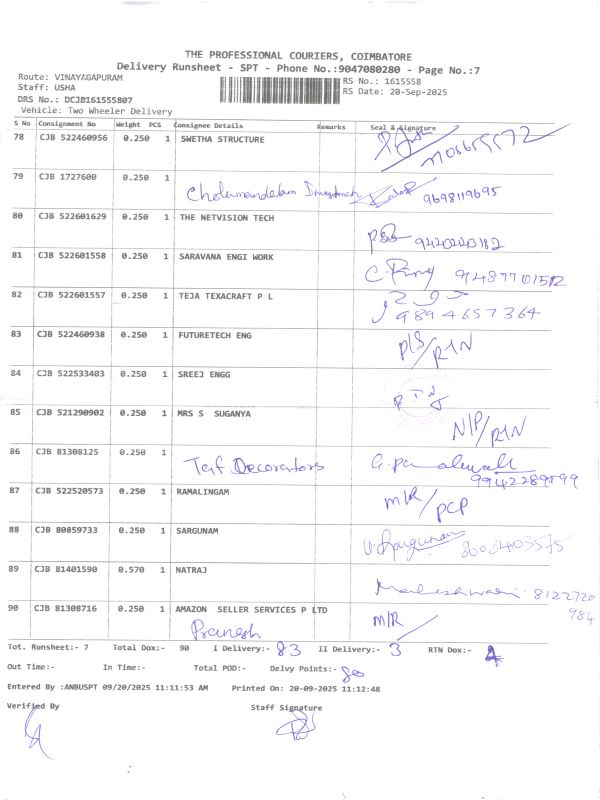 THE PROFESSIONAL COURIERS, COIMBATORE
Delivery Runsheet - SPT - Phone No.:9047080280 - Page No.:7
Route: VINAYAGAPURAM RS No.: 1615558
Staff: USHA RS Date: 20-Sep-2025
DRS No.: DCJB161555807
Vehicle: Two Wheeler Delivery
S No Consignment No Weight PCS Consignee Details Remarks Seal & Signature
78 CJB 522460956 0.250 1 SWETHA STRUCTURE
79 CJB 1727600 0.250 1
Cholamandalam 9698119695
80 CJB 522601629 0.250 1 THE NETVISION TECH
81 CJB 522601558 0.250 1 SARAVANA ENGI WORK
82 CJB 522601557 0.250 1 TEJA TEXACRAFT P L
9894657364
83 CJB 522460938 0.250 1 FUTURETECH ENG
D/S/RTN
84 CJB 522533403 0.250 1 SREEJ ENGG
85 CJB 521290902 0.250 1 MRS S SUGANYA
N/P/RTN
86 CJB 81308125 0.250 1
Decorators 9942289599
87 CJB 522520573 0.250 1 RAMALINGAM
M/R/PCP
88 CJB 80859733 0.250 1 SARGUNAM
V. Sargunam
89 CJB 81401590 0.570 1 NATRAJ
Maheshwari 8122720
984
90 CJB 81308716 0.250 1 AMAZON SELLER SERVICES P LTD
Pranesh M/R
Tot. Runsheet:- 7 Total Dox:- 90 I Delivery:- 83 II Delivery:- 3 RTN Dox:- 4
Out Time:- In Time:- Total POD:- Delvy Points:- 80
Entered By :ANBUSPT 09/20/2025 11:11:53 AM Printed On: 20-09-2025 11:12:48
Verified By Staff Signature